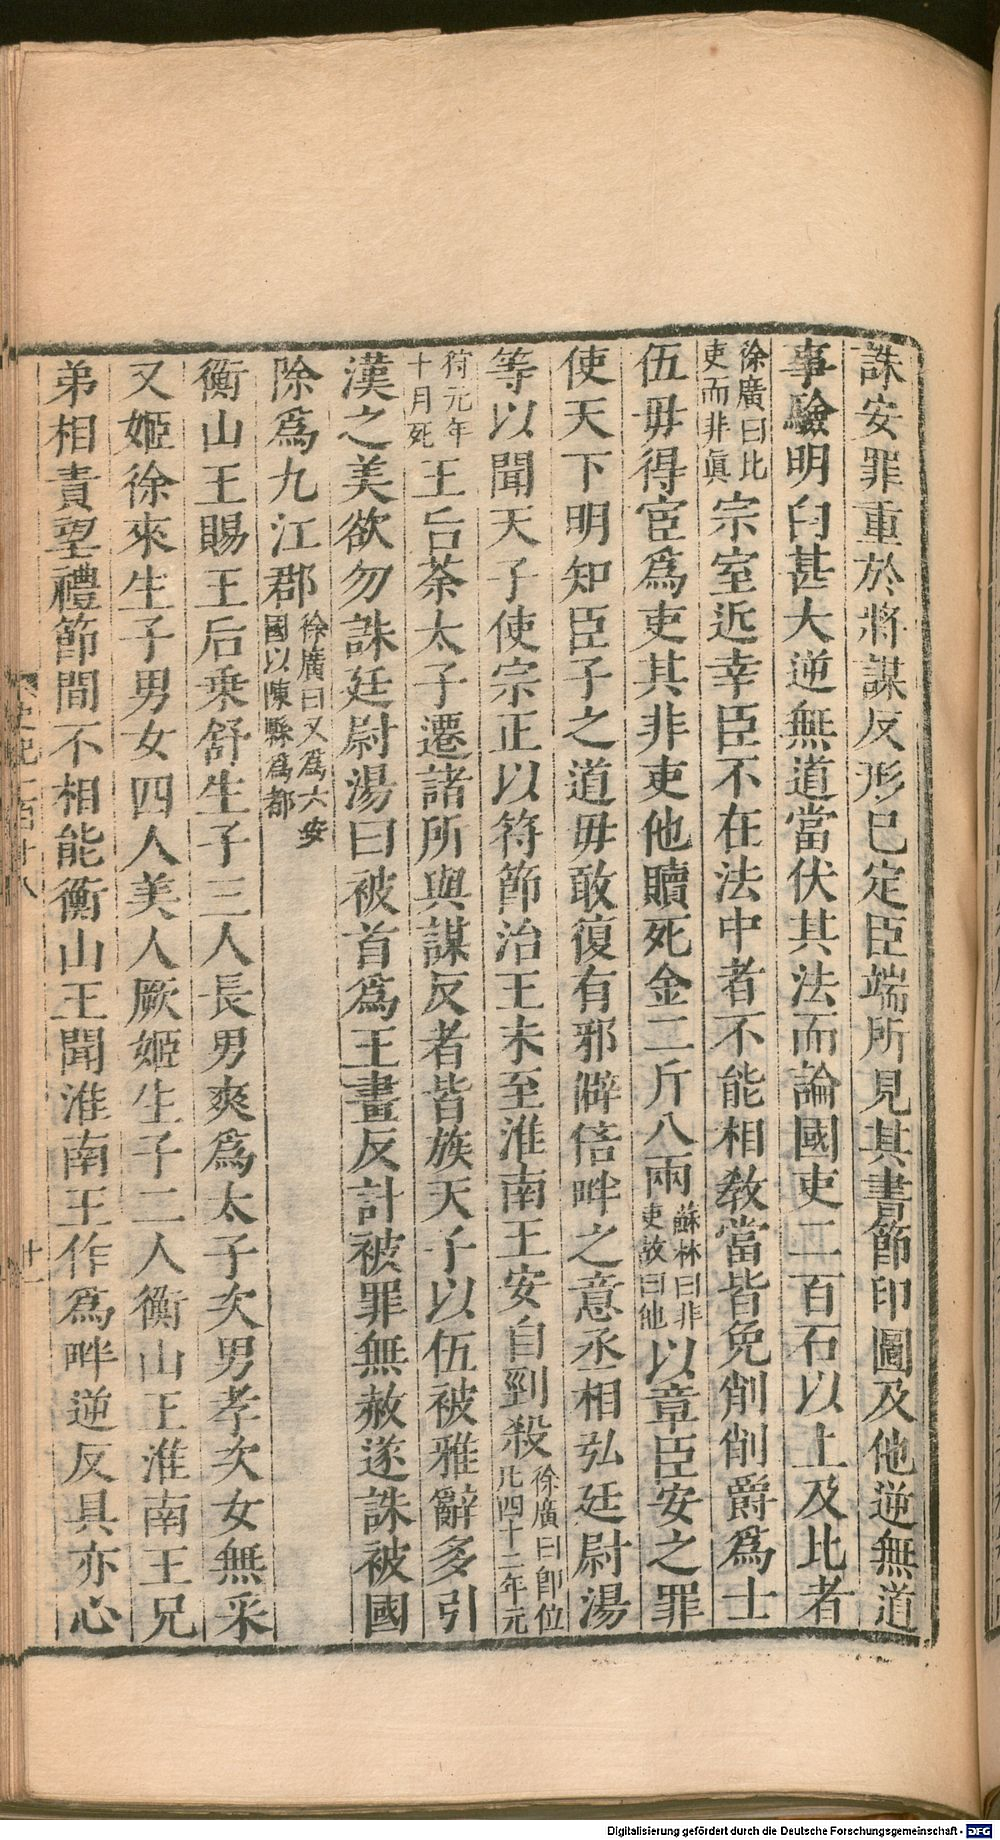 誅安罪重於將謀反形已定臣端所見其書節印圖及他逆無道
事驗明白甚大逆無道當伏其法而論國吏二百石以上及比者
徐廣曰比
吏而非眞
宗室近幸臣不在法中者不能相敎當皆免削削爵爲士
伍毋得宦爲吏其非吏他贖死金二斤八兩
蘇林曰非
吏故曰他
以章臣安之罪
使天下明知臣子之道毋敢復有邪僻倍畔之意丞相弘廷尉湯
等以聞天子使宗正以符節治王未至淮南王安自剄殺
徐廣曰卽位
凡四十二年元
符元年
十月死
王后荼太子遷諸所與謀反者皆族天子以伍被雅辭多引
漢之美欲勿誅廷尉湯曰被首爲王畫反計被罪無赦遂誅被國
除爲九江郡
徐廣曰又爲六安
國以陳縣爲都
衡山王賜王后乗舒生子三人長男爽爲太子次男孝次女無采
又姬徐來生子男女四人美人厥姬生子二人衡山王淮南王兄
弟相責望禮節間不相能衡山王聞淮南王作爲畔逆反具亦心
史記一百十八
廿一
Digitalisierung gefördert durch die Deutsche Forschungsgemeinschaft - DFG